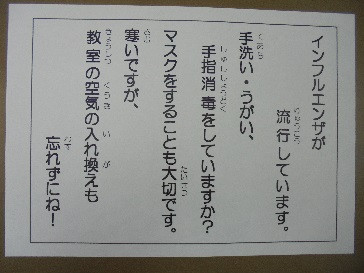 インフルエンザが
流行しています。
手洗い・うがい、
手指消毒をしていますか?
マスクをすることも大切です。
寒いですが、
教室の空気の入れ換えも
忘れずにね!